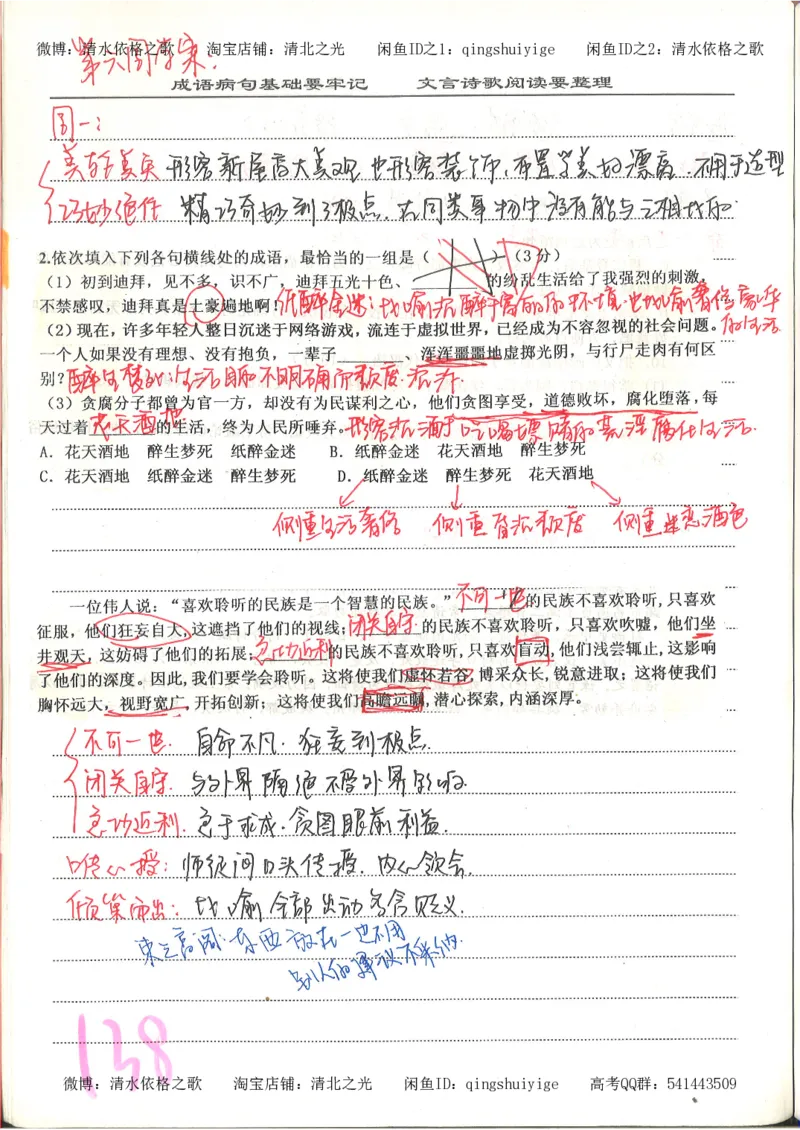 微博：清水依格之歌 淘宝店铺：清北之光 闲鱼ID之1：qingshuiyige 闲鱼ID之2：清水依格之歌
第六周学案.
成语病句基础要牢记 文言诗歌阅读要整理
周一：
美轮美奂 形容新屋高大美观 也形容装饰、布置等美的漂亮.不用于造型
巧妙绝伦 精巧奇妙到了极点.在同类事物中没有能与之相比的.
2.依次填入下列各句横线处的成语，最恰当的一组是（ ）（3分）
（1）初到迪拜，见不多，识不广，迪拜五光十色、________的纷乱生活给了我强烈的刺激，
不禁感叹，迪拜真是土豪遍地啊！纸醉金迷：比喻沉醉于富丽的环境.也比喻奢侈豪华
（2）现在，许多年轻人整日沉迷于网络游戏，流连于虚拟世界，已经成为不容忽视的社会问题。的生活
一个人如果没有理想、没有抱负，一辈子________、浑浑噩噩地虚掷光阴，与行尸走肉有何区
别？醉生梦死：生活目的不明确而颓废.
（3）贪腐分子都曾为官一方，却没有为民谋利之心，他们贪图享受，道德败坏，腐化堕落，每
天过着花天酒地的生活，终为人民所唾弃。形容沉湎于吃喝嫖赌的荒淫腐化生活.
A．花天酒地 醉生梦死 纸醉金迷 B．纸醉金迷 花天酒地 醉生梦死
C．花天酒地 纸醉金迷 醉生梦死 D．纸醉金迷 醉生梦死 花天酒地
侧重生活奢侈 侧重消沉颓废 侧重迷恋酒色
一位伟人说：“喜欢聆听的民族是一个智慧的民族。”不可一世的民族不喜欢聆听，只喜欢
征服，他们狂妄自大，这遮挡了他们的视线；闭关自守的民族不喜欢聆听，只喜欢吹嘘，他们坐
井观天，这妨碍了他们的拓展；急功近利的民族不喜欢聆听，只喜欢盲动，他们浅尝辄止，这影响
了他们的深度。因此，我们要学会聆听。这将使我们虚怀若谷，博采众长，锐意进取；这将使我们
胸怀远大，视野宽广，开拓创新；这将使我们高瞻远瞩，潜心探索，内涵深厚。
不可一世. 自命不凡.狂妄到极点.
闭关自守. 与外界隔绝不受外界影响.
急功近利. 急于求成.贪图眼前利益.
口传心授：师徒间口头传授.内心领会.
倾巢而出：比喻全部出动多含贬义.
束之高阁.东西放在一边不用
别人的建议不采纳.
138
微博：清水依格之歌 淘宝店铺：清北之光 闲鱼ID：qingshuiyige 高考QQ群：541443509